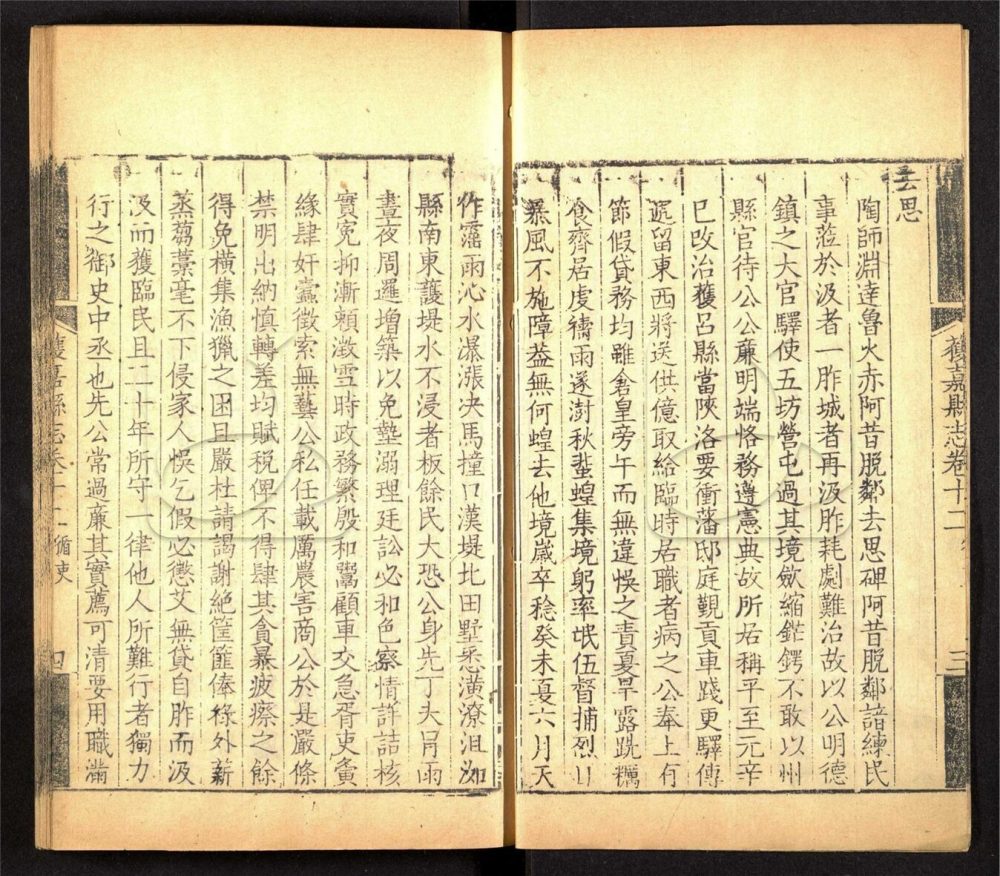 去思
陶師淵達魯火赤阿昔脫鄰去思碑阿昔脫鄰諳練民
事蒞於汲者一胙城者再汲胙耗劇難治故以公明德
鎮之大官驛使五坊營屯過其境歛縮鋩鍔不敢以州
縣官待公公廉明端恪務遵憲典故所居稱平至元辛
巳改治獲呂縣當陝洛要衝藩邸庭覲貢車踐更驛傳
遞留東西將送供億取給臨時居職者病之公奉上有
節假貸務均雖倉皇旁午而無違悞之責夏旱露跣糲
食齊居虔禱雨遂澍秋蝗集境躬率氓伍督捕烈日
暴風不施障葢無何蝗去他境歲卒稔癸未夏六月天
獲嘉縣志卷十二
三
作霪雨沁水瀑漲決馬撞口漢堤北田墅悉潢潦沮洳
縣南東護堤水不浸者板餘民大恐公身先丁夫冐雨
晝夜周邏增築以免墊溺理廷訟必和色察情詳詰核
實寃抑漸賴澂雪時政務繁殷和鬻顧車交急胥吏夤
緣肆奸蠹徵索無藝公私任載厲農害商公於是嚴條
禁明出納慎轉差均賦稅俾不得肆其貪暴疲瘵之餘
得免橫集漁獵之困且嚴杜請謁謝絕筐篚俸祿外薪
蒸蒭藁毫不下侵家人悞乞假必懲艾無貸自胙而汲
汲而獲臨民且二十年所守一律他人所難行者獨力
行之御史中丞也先公常過廉其實薦可清要用職滿
獲嘉縣志卷十二 循吏
四